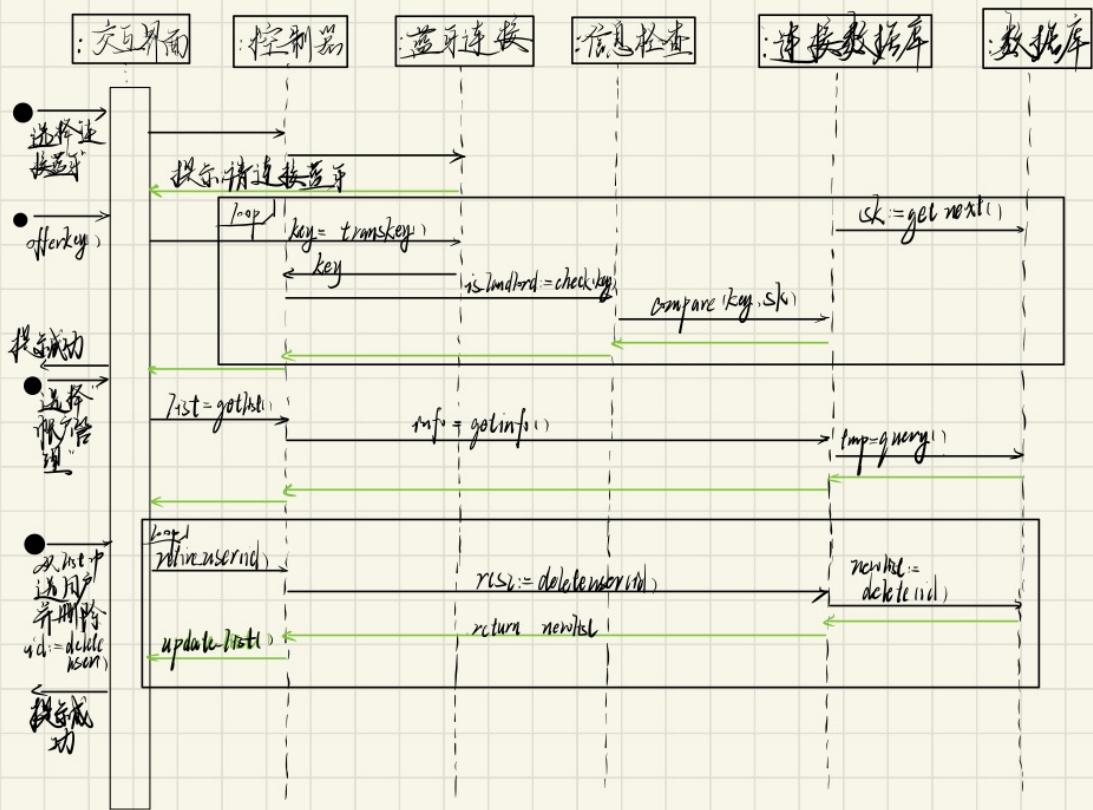 :交互界面
:控制器
:蓝牙连接
:信息检查
:连接数据库
:数据库
"选择连
接蓝牙"
提示:请连接蓝牙
loop
sk:=getnext()
offerkey()
key=transkey()
key
islandlord:=check(key)
compare(key,sk)
提示成功
"选择
账户管
理"
list=getlist()
info=getinfo()
tmp=query()
loop
从list中
选用户
并删除
uid:=delete
user()
res:=deleteuser(id)
newlist:=
delete(id)
return newlist
update-list()
提示成
功